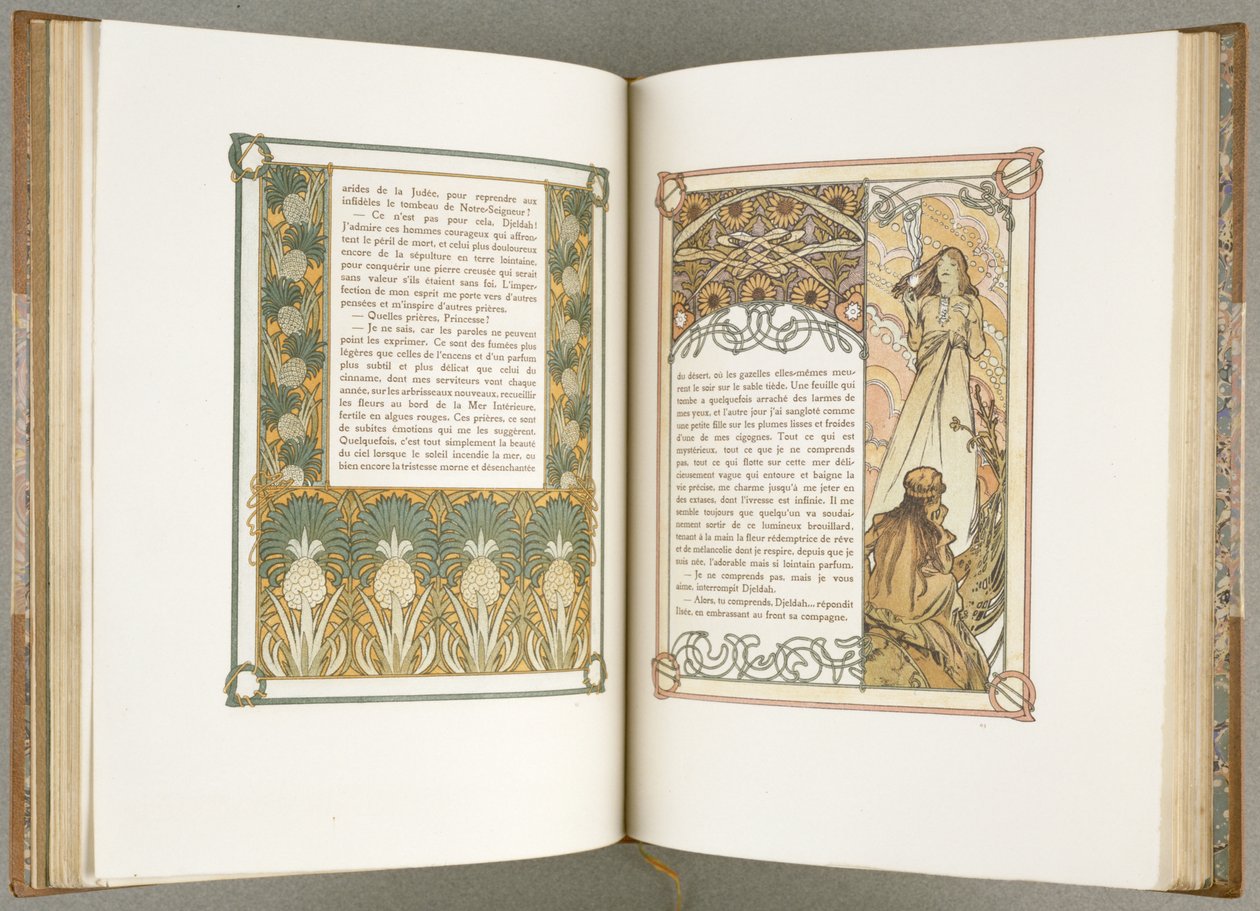 arides de la Judée, pour reprendre aux
infidèles le tombeau de Notre-Seigneur?
— Ce n'est pas pour cela, Djeldah!
J'admire ces hommes courageux qui affron-
tent le péril de mort, et celui plus douloureux
encore de la sépulture en terre lointaine,
pour conquérir une pierre creusée qui serait
sans valeur s'ils étaient sans foi. L'imper-
fection de mon esprit me porte vers d'autres
pensées et m'inspire d'autres prières.
— Quelles prières, Princesse?
— Je ne sais, car les paroles ne peuvent
point les exprimer. Ce sont des fumées plus
légères que celles de l'encens et d'un parfum
plus subtil et plus délicat que celui du
cinname, dont mes serviteurs vont chaque
année, sur les arbrisseaux nouveaux, recueillir
les fleurs au bord de la Mer Intérieure,
fertile en algues rouges. Ces prières, ce sont
de subites émotions qui me les suggèrent.
Quelquefois, c'est tout simplement la beauté
du ciel lorsque le soleil incendie la mer, ou
bien encore la tristesse morne et désenchantée
du désert, où les gazelles elles-mêmes meu-
rent le soir sur le sable tiède. Une feuille qui
tombe a quelquefois arraché des larmes de
mes yeux, et l'autre jour j'ai sangloté comme
une petite fille sur les plumes lisses et froides
d'une de mes cigognes. Tout ce qui est
mystérieux, tout ce que je ne comprends
pas, tout ce qui flotte sur cette mer déli-
cieusement vague qui entoure et baigne la
vie précise, me charme jusqu'à me jeter en
des extases, dont l'ivresse est infinie. Il me
semble toujours que quelqu'un va soudai-
nement sortir de ce lumineux brouillard,
tenant à la main la fleur rédemptrice de rêve
et de mélancolie dont je respire, depuis que je
suis née, l'adorable mais si lointain parfum.
— Je ne comprends pas, mais je vous
aime, interrompit Djeldah.
— Alors, tu comprends, Djeldah... répondit
Ilsée, en embrassant au front sa compagne.